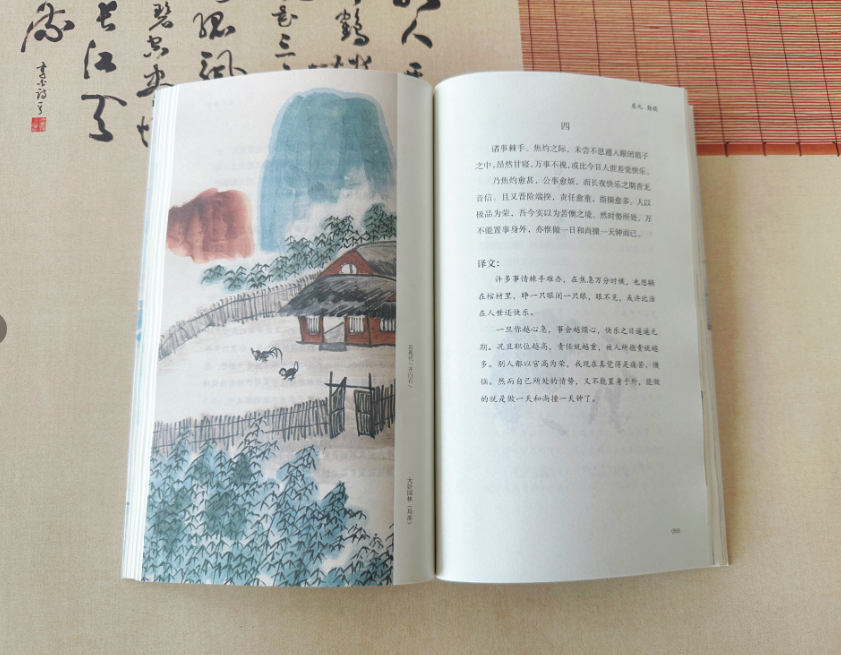 四
诸事棘手、焦灼之际，未尝不思遁入眼闭箱子
之中，昂然甘寝，万事不视，或比今日人世差觉快乐。
乃焦灼愈甚，公事愈烦，而长夜快乐之期杳无
音信。且又晋阶端揆，责任愈重，指摘愈多。人以
极品为荣，吾今实以为苦懊之境。然时势所处，万
不能置事身外，亦惟做一日和尚撞一天钟而已。
译文：
许多事情棘手难办，在焦急万分时候，也想躺
在棺材里，睁一只眼闭一只眼，眼不见，或许比活
在人世还快乐。
一旦你越心急，事会越烦心，快乐之日遥遥无
期。况且职位越高，责任就越重，被人所指责就越
多。别人都以官高为荣，我现在真觉得是痛苦、懊
恼。然而自己所处的情势，又不能置身于外，能做
的就是做一天和尚撞一天钟了。
长江